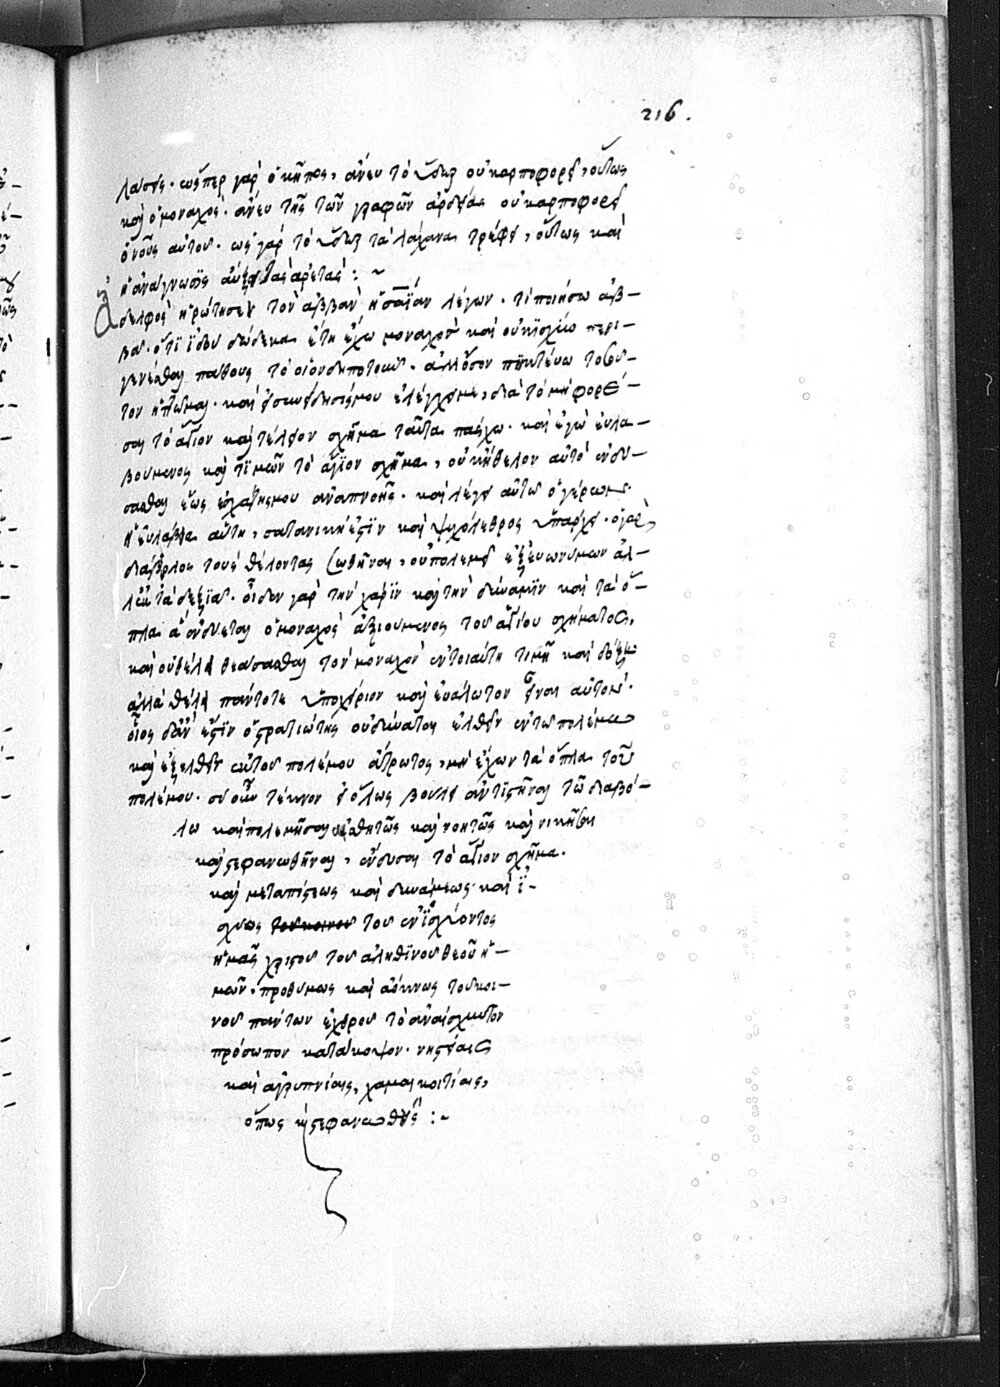 216.
λαύσης. ὥσπερ γὰρ ὁ κῆπος, ἄνευ τὸ ὕδωρ οὐ καρποφορεῖ, οὕτως
καὶ ὁ μοναχὸς. ἄνευ τῆς τῶν γραφῶν ἀρδείας οὐ καρποφορεῖ
ὁ νοῦς αὐτοῦ. ὡς γὰρ τὸ ὕδωρ τὰ λάχανα τρέφει, οὕτως καὶ
ἡ ἀνάγνωσις αὔξει τὰς ἀρετάς : ~
ἀ
δελφὸς ἠρώτησεν τὸν ἀββᾶν ἡσαΐαν λέγων. τί ποιήσω ἀβ-
βᾶ. ὅτι ἰδοὺ δώδεκα ἔτη ἔχω μοναχὸς καὶ οὐκ ἰσχύω περι-
γενέσθαι πάθους τὸ οἱονδήποτοῦν. ἀλλ' ὅσον πυκτεύω τοσοῦ-
τον ἡττῶμαι. καὶ ἡ συνείδησίς μου ἐλέγχει με, διὰ τὸ μὴ φορέ-
σαι τὸ ἅγιον καὶ τέλειον σχῆμα ταῦτα πάσχω. καὶ ἐγὼ εὐλα-
βούμενος καὶ τιμῶν τὸ ἅγιον σχῆμα, οὐκ ἤθελον αὐτὸ ἐνδύ-
σασθαι ἕως ἐσχάτης μου ἀναπνοῆς. καὶ λέγει αὐτῶ ὁ γέρων.
ἡ εὐλάβεια αὕτη, σατανική ἐστιν καὶ ψυχόλεθρος ὑπάρχει. ὁ γὰρ
διάβολος τοὺς θέλοντας σωθῆναι, οὐ πολεμεῖ ἐξ εὐωνύμων ἀλ-
λ' ἐκ τὰ δεξιά. οἶδεν γὰρ τὴν χάριν καὶ τὴν δύναμιν καὶ τὰ ὅ-
πλα ἃ ἐνδύεται ὁ μοναχὸς ἀξιούμενος τοῦ ἁγίου σχήματος,
καὶ οὐ θέλει θεάσασθαι τὸν μοναχὸν ἐν τοιαύτη τιμῆ καὶ δόξη
ἀλλὰ θέλει πάντοτε ὑποχείριον καὶ εὐάλωτον εἶναι αὐτόν.
οἷος δἂν ἐστιν ὁ στρατιώτης οὐ δύναται ἐλθεῖν ἐν τῶ πολέμω
καὶ ἐξελθεῖν ἐκ τοῦ πολέμου ἄτρωτος, μὴ ἔχων τὰ ὅπλα τοῦ
πολέμου. σὺ οὖν τέκνον εἰ ὅλως βούλει ἀντιστῆναι τῶ διαβό-
λω καὶ πολεμῆσαι αἰσθητῶς καὶ νοητῶς καὶ νικῆσαι
καὶ στεφανωθῆναι, ἔνδυσαι τὸ ἅγιον σχῆμα.
καὶ μετὰ πίστεως καὶ δυνάμεως καὶ ἰ-
σχύος τοῦ κοινοῦ τοῦ ἐνισχύοντος
ἡμᾶς χριστοῦ τοῦ ἀληθινοῦ θεοῦ ἡ-
μῶν, προθύμως καὶ ἀόκνως τοῦ κοι-
νοῦ πάντων ἐχθροῦ τὸ ἀναίσχυντον
πρόσωπον κατάκοψον. νηστείαις
καὶ ἀγρυπνίαις, χαμαικοιτίαις,
ὅπως καὶ στεφανωθῆς : ~